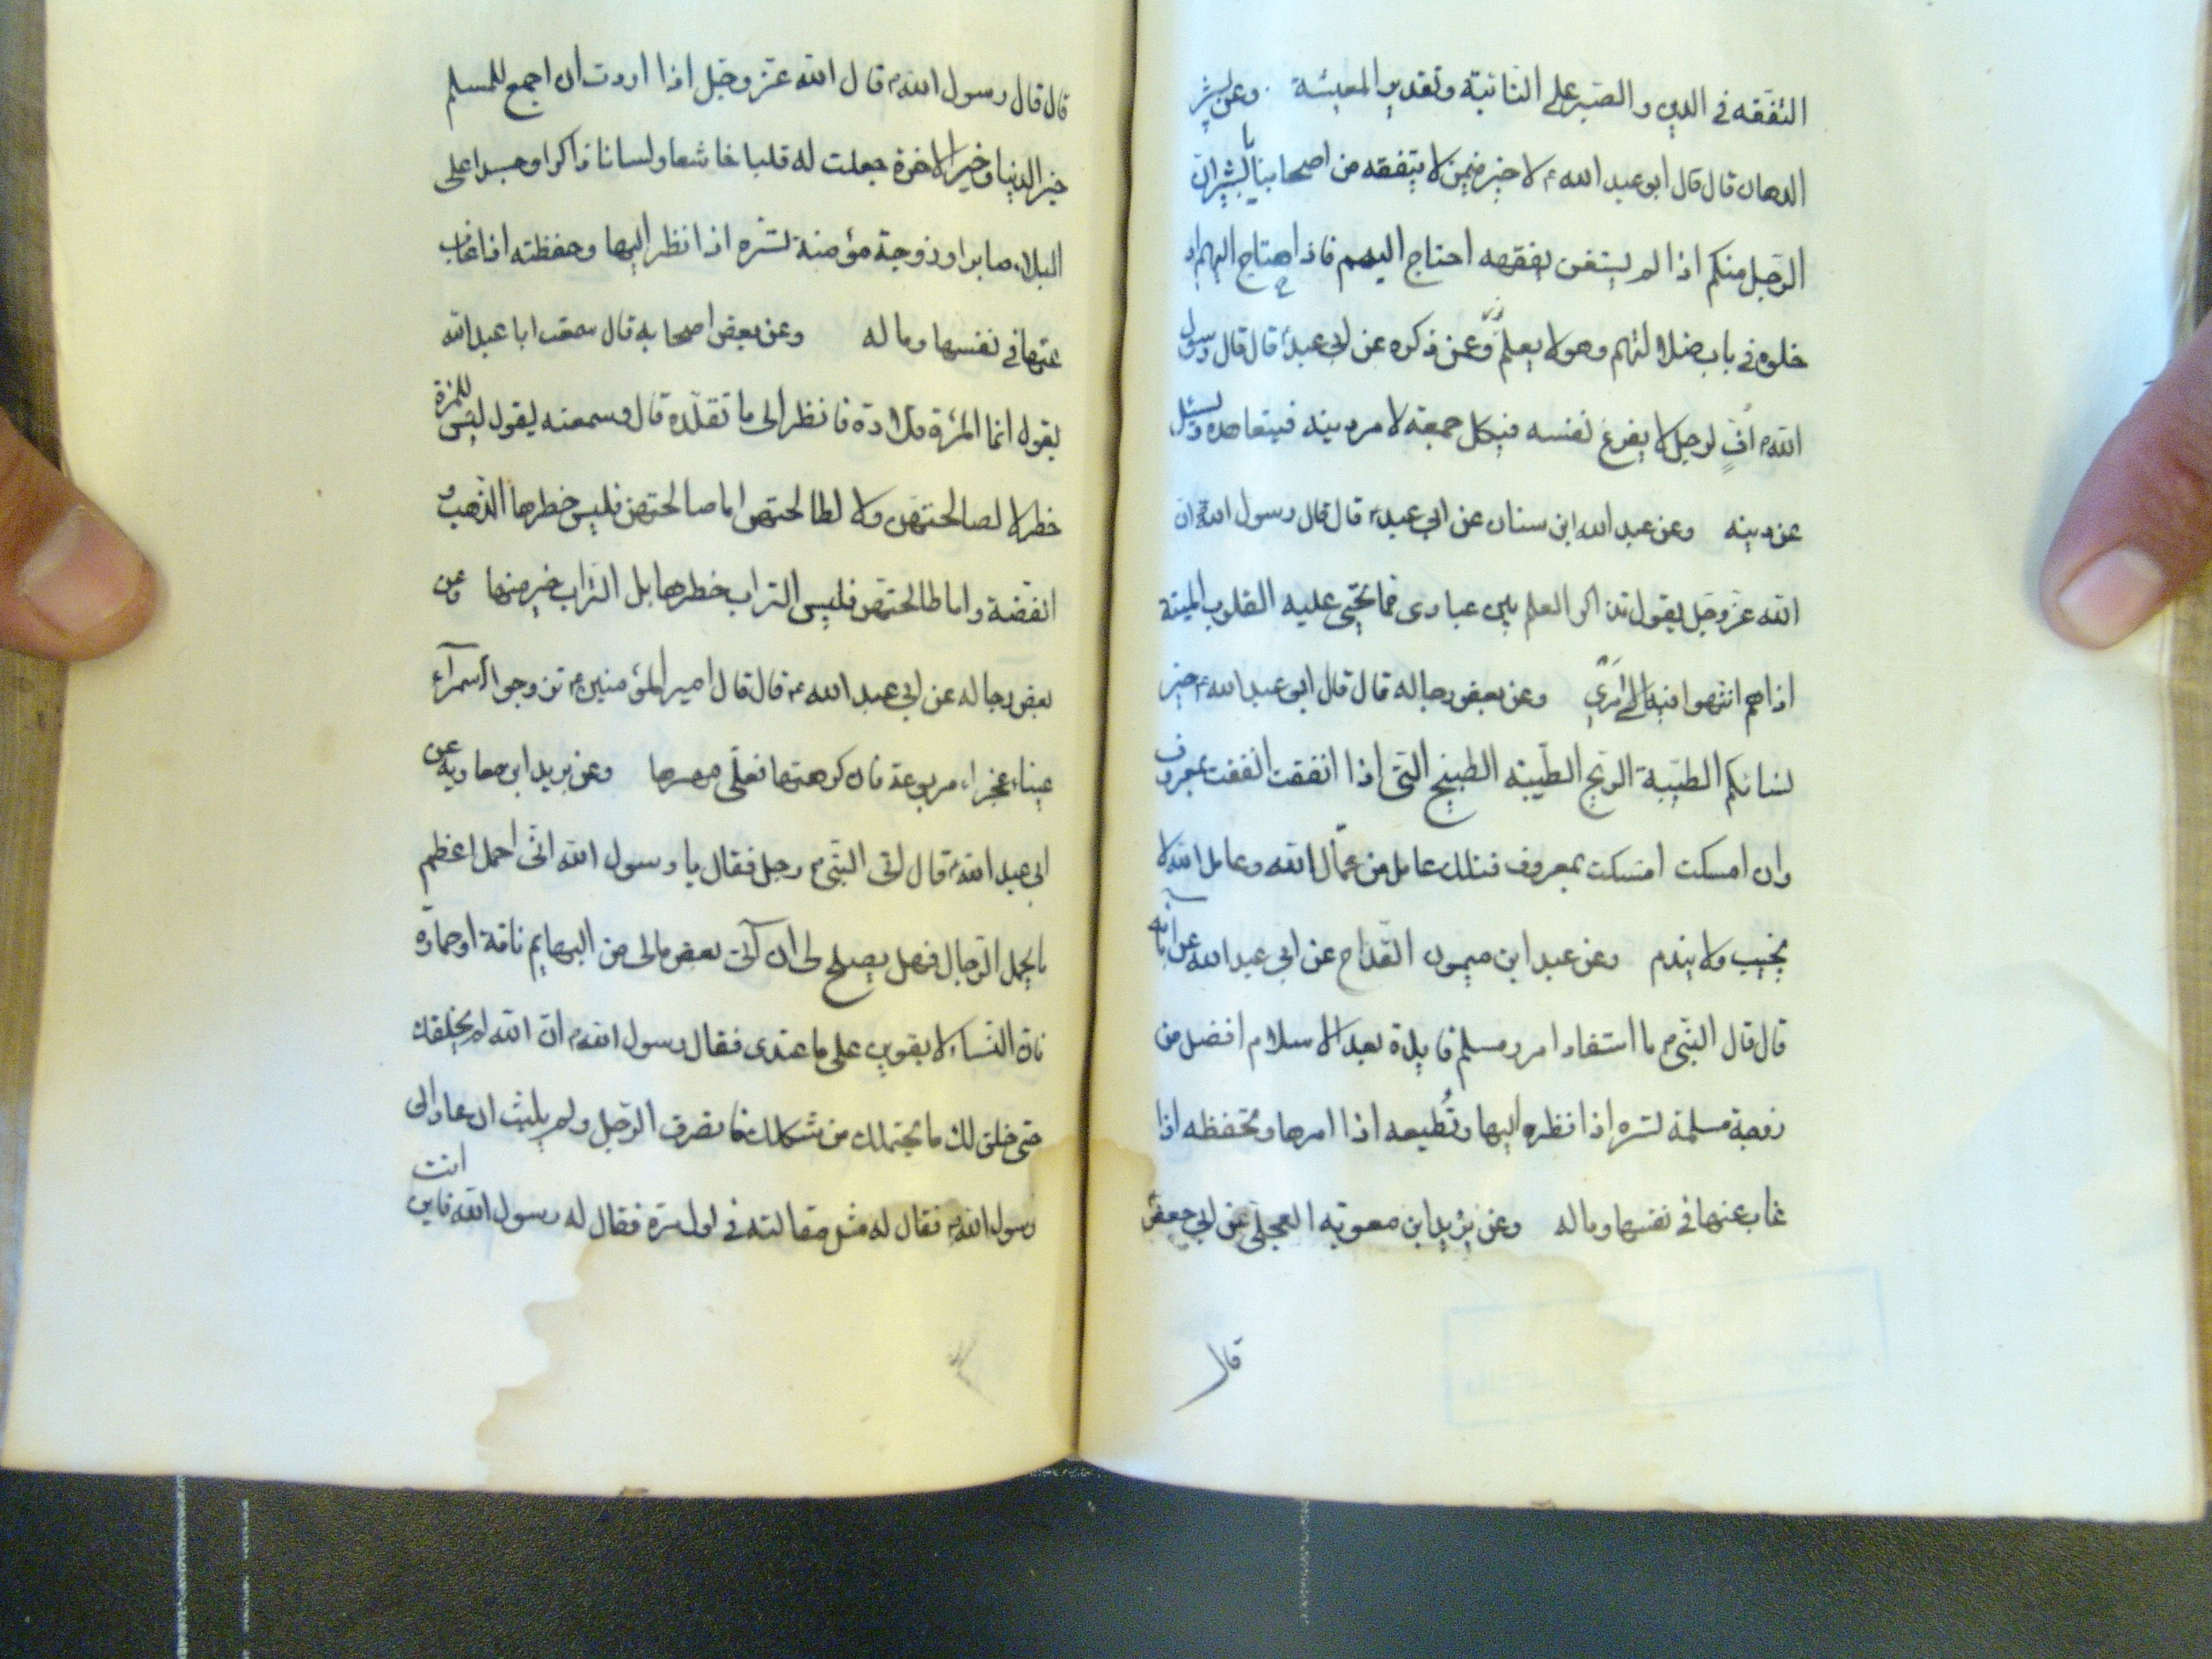 التفقه في الدين والصبر على النائبة وتقدير المعيشة وعن بشير
الدهان قال قال ابو عبد الله ع لا خير فيمن لا يتفقه من اصحابنا يا بشير ان
الرجل منكم اذا لم يستغن بفقهه احتاج اليهم فاذا احتاج اليهم اد
خلوه في باب ضلالتهم وهو لا يعلم وعن ذكره عن ابي عبد ع قال قال رسول
الله ص افٍّ لرجل لا يفرغ نفسه في كل جمعة لامر دينه فيتعاهده ويسئل
عن دينه وعن عبد الله ابن سنان عن ابي عبد ع قال قال رسول الله ص ان
الله عز وجل يقول تذاكر العلم بين عبادى مما تحيى عليه القلوب الميتة
اذا هم انتهوا فيه الى امري وعن بعض رجاله قال قال ابو عبد الله ع خير
نسائكم الطيبة الريح الطيبة الطبيخ التى اذا انفقت انفقت بمعروف
وان امسكت امسكت بمعروف فتلك عامل من عمال الله وعامل الله لا
يخيب ولا يندم وعن عبد ابن ميمون القداح عن ابي عبد الله عن آبائه
قال قال النبى ص ما استفاد امرء مسلم فايدة بعد الاسلام افضل من
زوجة مسلمة تسره اذا نظره اليها وتُطيعه اذا امرها وتحفظه اذا
غاب عنها في نفسها وماله وعن بريد ابن معوية العجلى عن ابي جعفر ع
قال
قال قال رسول الله ص قال الله عز وجل اذا اردت ان اجمع للمسلم
خير الدنيا وخير الاخرة جعلت له قلبا خاشعا ولسانا ذاكرا وجسدا على
البلاء صابرا وزوجة مؤمنة تسره اذا نظر اليها وحفظته اذا غاب
عنها في نفسها وماله وعن بعض اصحابه قال سمعت ابا عبد الله
يقول انما المرئة قلادة فانظر الى ما تقلده قال وسمعته يقول ليس للمرئة
خطر لا لصالحتهن ولا لطالحتهن اما صالحتهن فليس خطرها الذهب و
الفضة واما طالحتهن فليس التراب خطرها بل التراب خير منها وعن
بعض رجاله عن ابي عبد الله ع قال قال امير المؤمنين ع تزوجوا سمرآء
عيناء عجزاء مربوعة فان كرهتها فعلى مهرها وعن بريد ابن معاوية عن
ابي عبد الله ع قال اتى النبى ص رجل فقال يا رسول الله انى احمل اعظم
ما يحمل الرجال فهل يصلح لى ان آتى بعض مالى من البهايم ناقة او حمارة
فان النساء لا يقوين على ما عندى فقال رسول الله ص ان الله لم يخلقك
حتى خلق لك ما يحتملك من شكلك فانصرف الرجل ولم يلبث ان عاد الى
رسول الله ص فقال له مثل مقالته في اول مرة فقال له رسول الله فاين انت